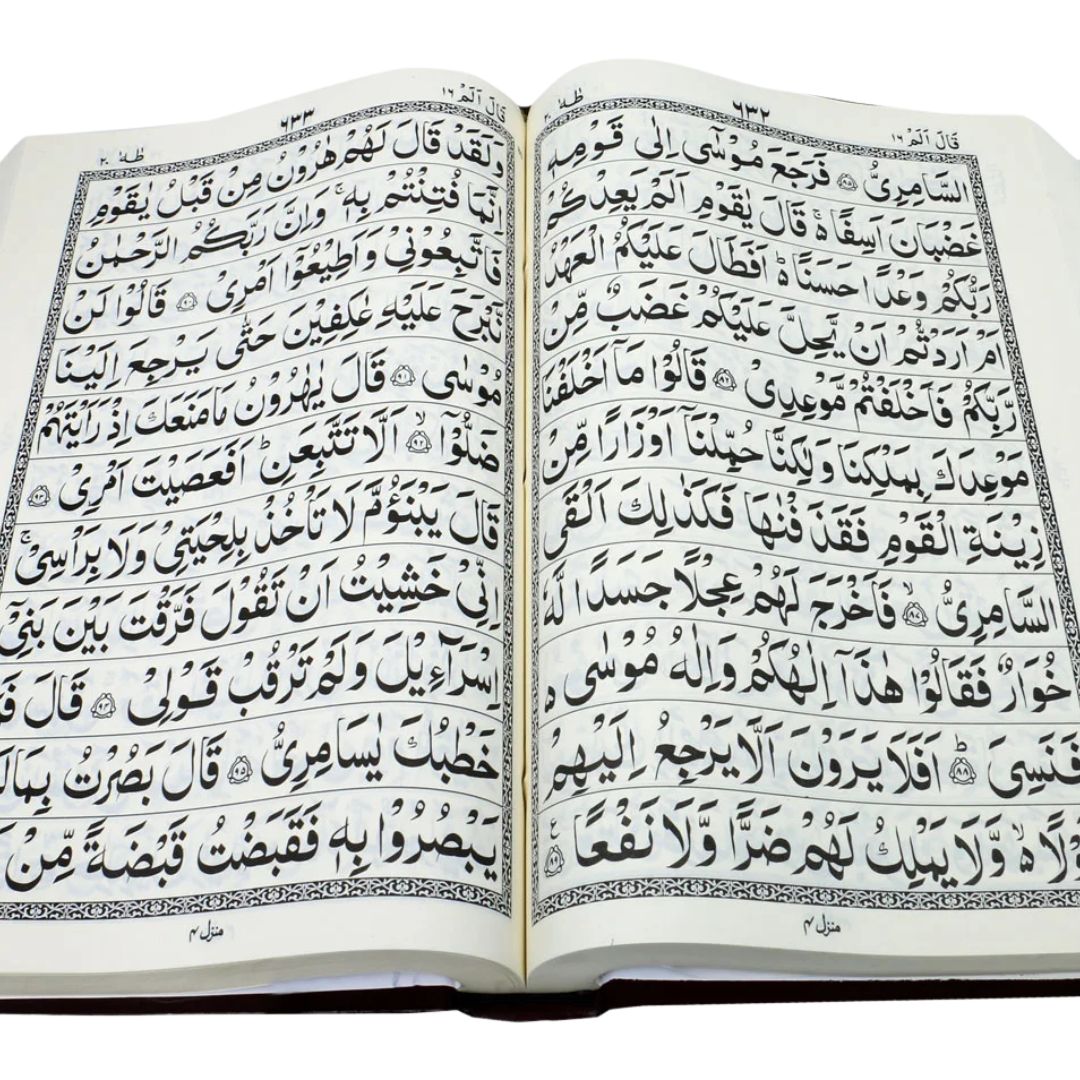 قَالَ اَلَمْ ١٦
٦٣٢
طٰهٰ ٢٠
السَّامِرِیُّ ﴿٨٥﴾ فَرَجَعَ مُوْسٰۤی اِلٰی قَوْمِهٖ
غَضْبَانَ اَسِفًا ۬ۚ قَالَ یٰقَوْمِ اَلَمْ یَعِدْكُمْ
رَبُّكُمْ وَعْدًا حَسَنًا ۬ؕ اَفَطَالَ عَلَیْكُمُ الْعَهْدُ
اَمْ اَرَدْتُّمْ اَنْ یَّحِلَّ عَلَیْكُمْ غَضَبٌ مِّنْ
رَّبِّكُمْ فَاَخْلَفْتُمْ مَّوْعِدِیْ ﴿٨٦﴾ قَالُوْا مَاۤ اَخْلَفْنَا
مَوْعِدَكَ بِمَلْكِنَا وَلٰكِنَّا حُمِّلْنَاۤ اَوْزَارًا مِّنْ
زِیْنَةِ الْقَوْمِ فَقَذَفْنٰهَا فَكَذٰلِكَ اَلْقَی
السَّامِرِیُّ ﴿٨٧﴾ۙ فَاَخْرَجَ لَهُمْ عِجْلًا جَسَدًا لَّهٗ
خُوَارٌ فَقَالُوْا هٰذَاۤ اِلٰهُكُمْ وَاِلٰهُ مُوْسٰی ۬
فَنَسِیَ ﴿٨٨﴾ؕ اَفَلَا یَرَوْنَ اَلَّا یَرْجِعُ اِلَیْهِمْ
قَوْلًا ۬ۙ وَّلَا یَمْلِكُ لَهُمْ ضَرًّا وَّلَا نَفْعًا ﴿٨٩﴾
منزل ٤
قَالَ اَلَمْ ١٦
٦٣٣
طٰهٰ ٢٠
وَلَقَدْ قَالَ لَهُمْ هٰرُوْنُ مِنْ قَبْلُ یٰقَوْمِ
اِنَّمَا فُتِنْتُمْ بِهٖ ۚ وَاِنَّ رَبَّكُمُ الرَّحْمٰنُ
فَاتَّبِعُوْنِیْ وَاَطِیْعُوْۤا اَمْرِیْ ﴿٩٠﴾ قَالُوْا لَنْ
نَّبْرَحَ عَلَیْهِ عٰكِفِیْنَ حَتّٰی یَرْجِعَ اِلَیْنَا
مُوْسٰی ﴿٩١﴾ قَالَ یٰهٰرُوْنُ مَا مَنَعَكَ اِذْ رَاَیْتَهُمْ
ضَلُّوْۤا ﴿٩٢﴾ۙ اَلَّا تَتَّبِعَنِ ؕ اَفَعَصَیْتَ اَمْرِیْ ﴿٩٣﴾
قَالَ یَبْنَؤُمَّ لَا تَاْخُذْ بِلِحْیَتِیْ وَلَا بِرَاْسِیْ ۚ
اِنِّیْ خَشِیْتُ اَنْ تَقُوْلَ فَرَّقْتَ بَیْنَ بَنِیْۤ
اِسْرَآءِیْلَ وَلَمْ تَرْقُبْ قَوْلِیْ ﴿٩٤﴾ قَالَ
خَطْبُكَ یٰسَامِرِیُّ ﴿٩٥﴾ قَالَ بَصُرْتُ بِمَا لَمْ
یَبْصُرُوْا بِهٖ فَقَبَضْتُ قَبْضَةً مِّنْ
منزل ٤